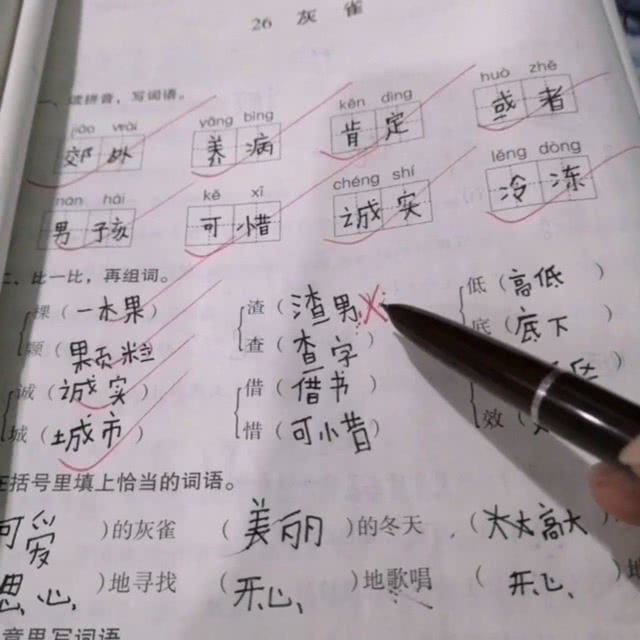 26 灰雀
读拼音，写词语。
jiāo wài yǎng bìng kěn dìng huò zhě
郊外 养病 肯定 或者
nán hái kě xī chéng shí lěng dòng
男孩 可惜 诚实 冷冻
二、比一比，再组词。
渣（渣男） 低（高低）
颗（颗粒） 查（查字） 底（底下）
诚（诚实） 借（借书）
城（城市） 惜（可惜） 效
在括号里填上恰当的词语。
可爱）的灰雀 （美丽）的冬天 （高大）
）地寻找 （开心）地歌唱 （开心
意思写词语